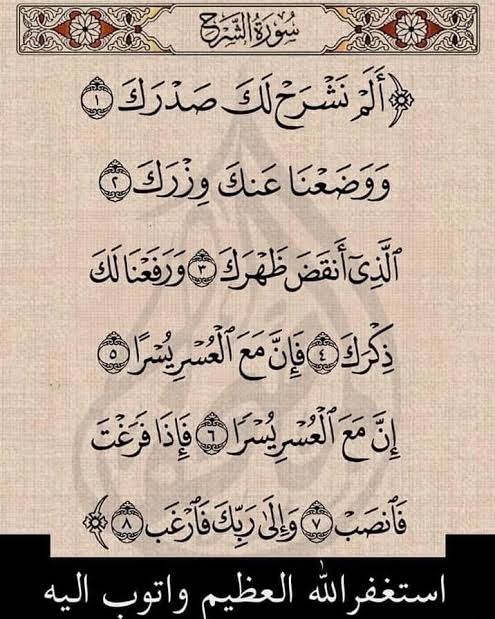 سُورَةُ الشَّرْحِ
﴿أَلَمْ نَشْرَحْ لَكَ صَدْرَكَ ١
وَوَضَعْنَا عَنكَ وِزْرَكَ ٢
ٱلَّذِىٓ أَنقَضَ ظَهْرَكَ ٣ وَرَفَعْنَا لَكَ
ذِكْرَكَ ٤ فَإِنَّ مَعَ ٱلْعُسْرِ يُسْرًا ٥
إِنَّ مَعَ ٱلْعُسْرِ يُسْرًا ٦ فَإِذَا فَرَغْتَ
فَٱنصَبْ ٧ وَإِلَىٰ رَبِّكَ فَٱرْغَب ٨﴾
استغفرالله العظيم واتوب اليه